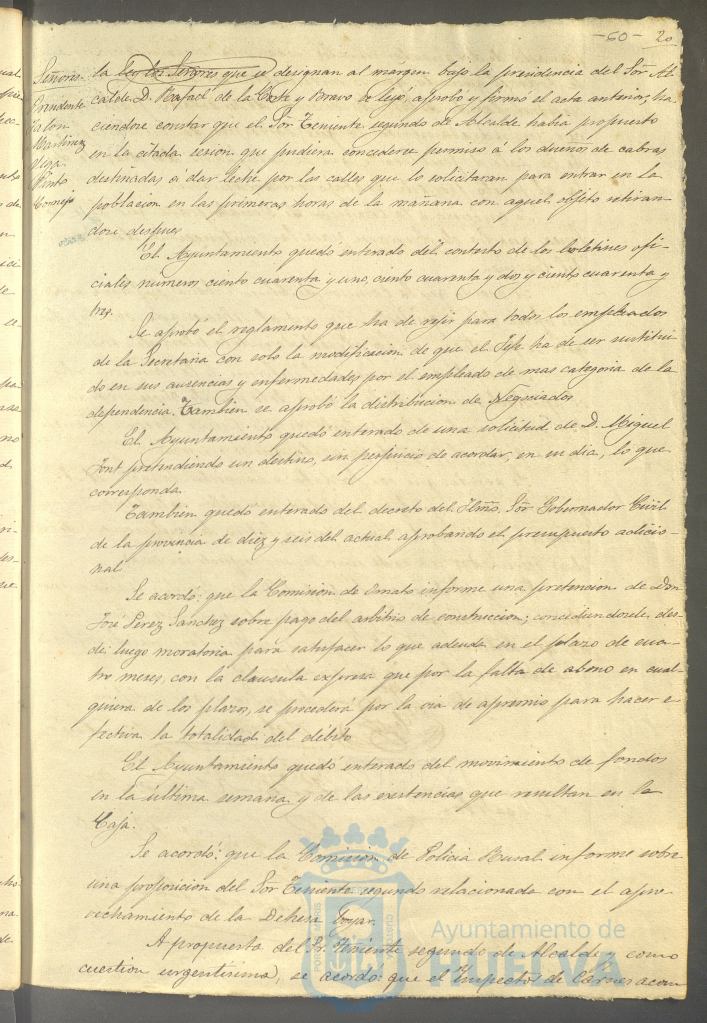 -60- 20
Señores
Presidente
Martinez
Pinto
Cornejo
la ley los Señores que se designan al márgen bajo la presidencia del Sõr Al-
calde D. Rafael de la Corte y Bravo se leyó, aprobó y firmó el acta anterior, ha-
ciendose constar que el Sõr Teniente segundo de Alcalde habia propuesto
en la citada sesion que pudiera concederse permiso á los dueños de cabras
destinadas a dar leche por las calles que lo solicitaran para entrar en la
poblacion en las primeras horas de la mañana con aquel objeto retiran-
dose despues
El Ayuntamiento quedó enterado del contesto de los boletines ofi-
ciales numeros ciento cuarenta y uno, ciento cuarenta y dos y ciento cuarenta y
tres.
Se aprobó el reglamento que ha de regir para todos los empleados
de la Secretaria con solo la modificacion de que el Jefe ha de ser sustitui-
do en sus ausencias y enfermedades por el empleado de mas categoria de la
dependencia. Tambien se aprobó la distribucion de Negociados
El Ayuntamiento quedó enterado de una solicitud de D. Miguel
Font pretendiendo un destino, sin perjuicio de acordar, en su dia, lo que
corresponda.
Tambien quedó enterado del decreto del Iltmõ. Sõr Gobernador Civil
de la provincia de diez y seis del actual aprobando el presupuesto adicio-
nal
Se acordó: que la Comision de Ornato informe una pretencion de Don
José Perez Sanchez sobre pago del arbitrio de construccion; concidiendosele, des-
de luego moratoria para satisfacer lo que adeuda en el plazo de cua-
tro meses, con la clausula expresa que por la falta de abono en cual-
quiera de los plazos, se procederá por la via de apremio para hacer e-
fectiva la totalidad del débito
El Ayuntamiento quedó enterado del movimiento de fondos
en la última semana y de las existencias que resultan en la
Caja.
Se acordó: que la Comisión de Policia Rural informe sobre
una proposicion del Sõr Teniente segundo relacionada con el apro-
vechamiento de la Dehesa Boyar.
A propuesta del Sr. Teniente segundo de Alcalde y como
cuestion urgentisima, se acordó: que el Inspector de Carnes acom
Ayuntamiento de
HUELVA